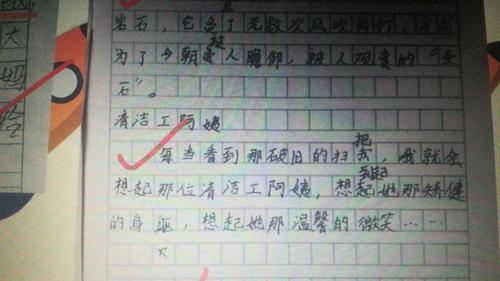 岩石，它了无数次风吹雨打，才成
为了今朝被人瞻仰，被人观赏的“
石”。
清洁工阿姨
每当看到那破旧的扫把，我就会
想起那位清洁工阿姨，想起她那矫健
的身躯，想起她那温馨的微笑……